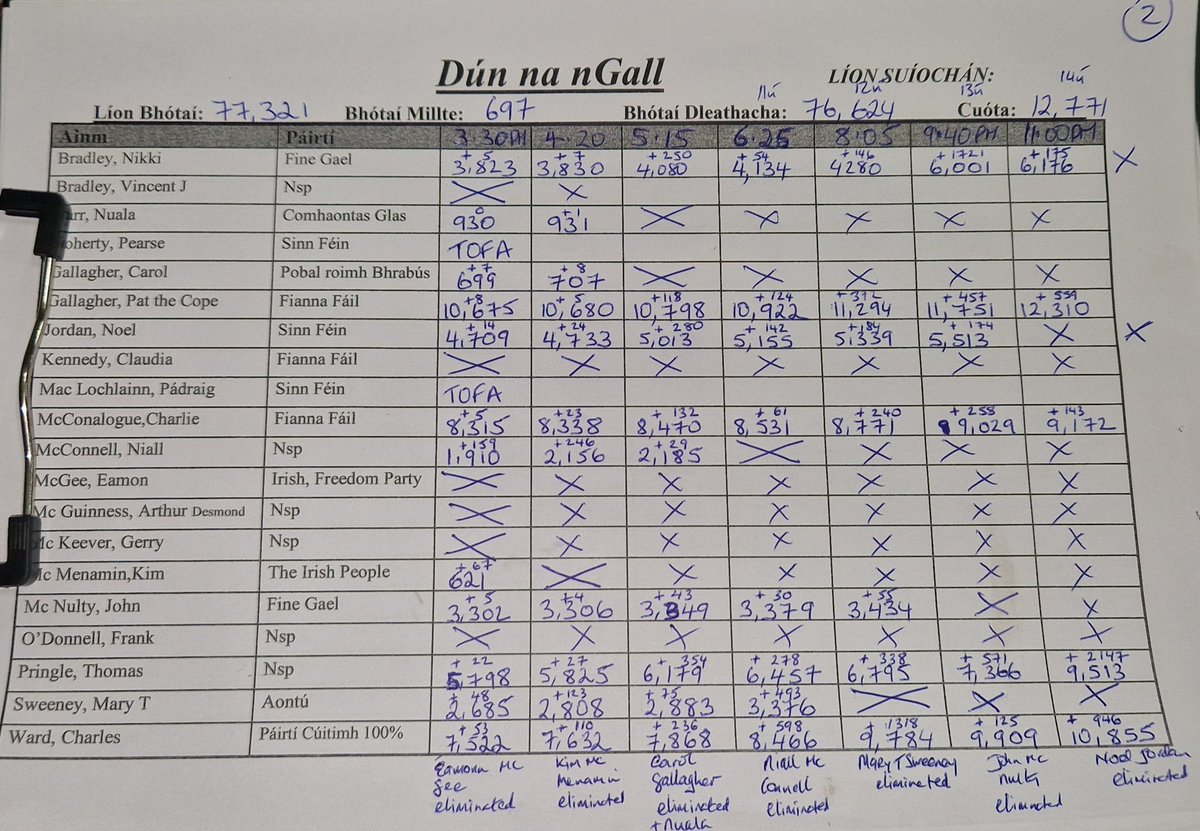 2
Dún na nGall LÍON SUÍOCHÁN:
11ú 12ú 13ú 14ú
Líon Bhótaí: 77,321 Bhótaí Millte: 697 Bhótaí Dleathacha: 76,624 Cuóta: 12,771
Ainm Páirtí 3.30PM 4.20 5.15 6.25 8.05 9.40PM 11.00PM
Bradley, Nikki Fine Gael +5 3,823 +7 3,830 +250 4,080 +54 4,134 +146 4280 +1721 6,001 +175 6,176 X
Bradley, Vincent J Nsp X X
arr, Nuala Comhaontas Glas 0 930 +1 931 X X X X X
oherty, Pearse Sinn Féin TOFA
Gallagher, Carol Pobal roimh Bhrabús +7 699 +8 707 X X X X X
Gallagher, Pat the Cope Fianna Fáil +8 10,675 +5 10,680 +118 10,798 +124 10,922 +372 11,294 +457 11,751 +559 12,310
Jordan, Noel Sinn Féin +14 4,709 +24 4,733 +280 5,013 +142 5,155 +184 5,339 +174 5,513 X X
Kennedy, Claudia Fianna Fáil X X X X X X X
Mac Lochlainn, Pádraig Sinn Féin TOFA
McConalogue,Charlie Fianna Fáil +5 8,315 +23 8,338 +132 8,470 +61 8,531 +240 8,771 +258 9,029 +143 9,172
McConnell, Niall Nsp +159 1,910 +246 2,156 +29 2,185 X X X X
McGee, Eamon Irish, Freedom Party X X X X X X X
Mc Guinness, Arthur Desmond Nsp X X X X X X X
Mc Keever, Gerry Nsp X X X X X X X
Mc Menamin,Kim The Irish People +67 621 X X X X X X
Mc Nulty, John Fine Gael +5 3,302 +4 3,306 +43 3,349 +30 3,379 +55 3,434 X X
O'Donnell, Frank Nsp X X X X X X X
Pringle, Thomas Nsp +22 5,798 +27 5,825 +354 6,179 +278 6,457 +338 6,795 +571 7,366 +2147 9,513
Sweeney, Mary T Aontú +48 2,685 +123 2,808 +75 2,883 +493 3,376 X X X
Ward, Charles Páirtí Cúitimh 100% +53 7,522 +110 7,632 +236 7,868 +598 8,466 +1318 9,784 +125 9,909 +946 10,855
Eamonn Mc Gee eliminated
Kim Mc Menamin eliminated
Carol Gallagher eliminated + Nuala
Niall Mc Connell eliminated
Mary T Sweeney eliminated
John Mc Nulty eliminated
Noel Jordan eliminated